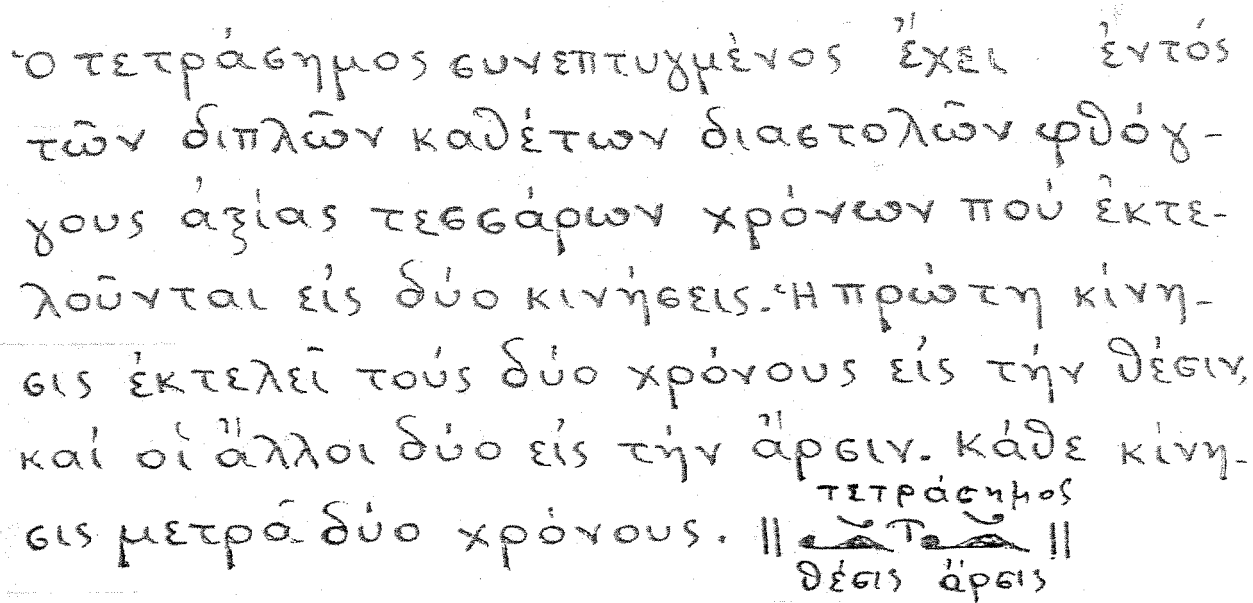 Ὁ τετράσημος συνεπτυγμένος ἔχει ἐντός
τῶν διπλῶν καθέτων διαστολῶν φθόγ-
γους ἀξίας τεσσάρων χρόνων πού ἐκτε-
λοῦνται εἰς δύο κινήσεις. Ἡ πρώτη κίνη-
σις ἐκτελεῖ τούς δύο χρόνους εἰς τήν θέσιν,
καί οἱ ἄλλοι δύο εἰς τήν ἄρσιν. Κάθε κίνη-
σις μετρᾶ δύο χρόνους.
τετράσημος
θέσις ἄρσις